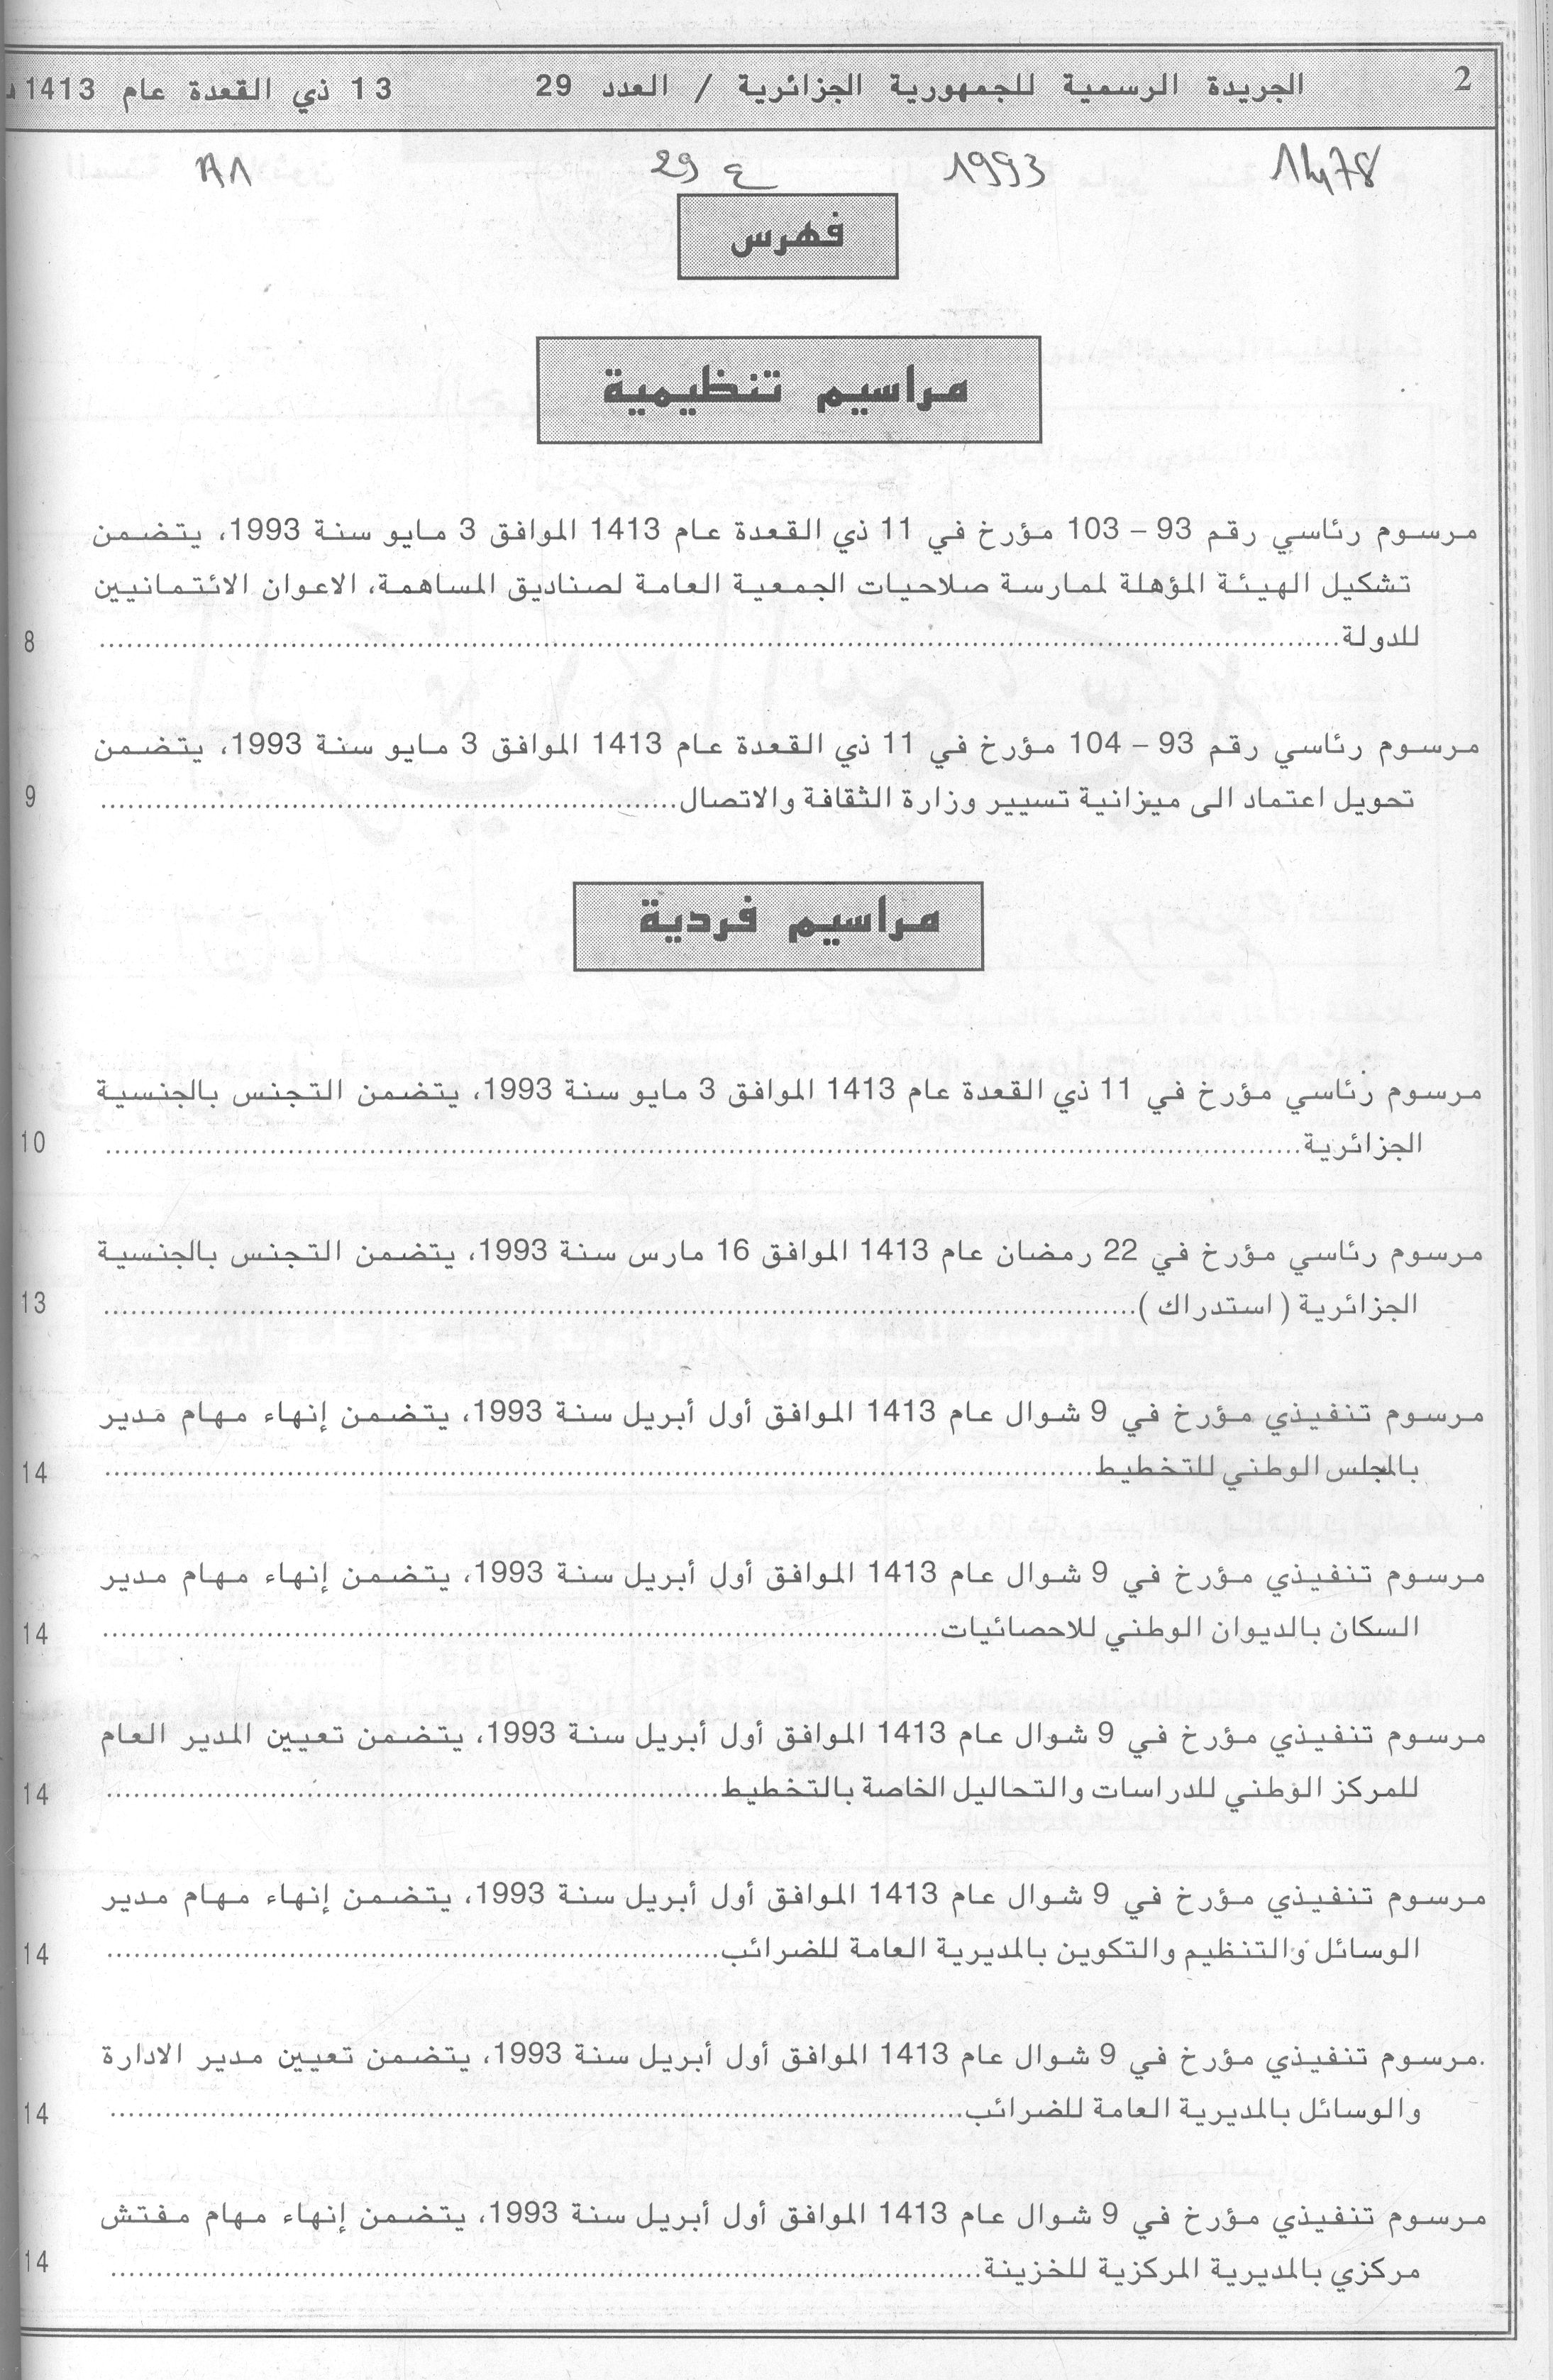 2 الجريدة الرسمية للجمهورية الجزائرية / العدد 29 13 ذي القعدة عام 1413
1478 1993 ع 29 A1
فهرس
مراسيم تنظيمية
مرسوم رئاسي رقم 93 – 103 مؤرخ في 11 ذي القعدة عام 1413 الموافق 3 مايو سنة 1993، يتضمن
تشكيل الهيئة المؤهلة لممارسة صلاحيات الجمعية العامة لصناديق المساهمة، الاعوان الائتمانيين
للدولة........ 8
مرسوم رئاسي رقم 93 – 104 مؤرخ في 11 ذي القعدة عام 1413 الموافق 3 مايو سنة 1993، يتضمن
تحويل اعتماد الى ميزانية تسيير وزارة الثقافة والاتصال........ 9
مراسيم فردية
مرسوم رئاسي مؤرخ في 11 ذي القعدة عام 1413 الموافق 3 مايو سنة 1993، يتضمن التجنس بالجنسية
الجزائرية........ 10
مرسوم رئاسي مؤرخ في 22 رمضان عام 1413 الموافق 16 مارس سنة 1993، يتضمن التجنس بالجنسية
الجزائرية ( استدراك )........ 13
مرسوم تنفيذي مؤرخ في 9 شوال عام 1413 الموافق أول أبريل سنة 1993، يتضمن إنهاء مهام مدير
بالمجلس الوطني للتخطيط........ 14
مرسوم تنفيذي مؤرخ في 9 شوال عام 1413 الموافق أول أبريل سنة 1993، يتضمن إنهاء مهام مدير
السكان بالديوان الوطني للاحصائيات........ 14
مرسوم تنفيذي مؤرخ في 9 شوال عام 1413 الموافق أول أبريل سنة 1993، يتضمن تعيين المدير العام
للمركز الوطني للدراسات والتحاليل الخاصة بالتخطيط........ 14
مرسوم تنفيذي مؤرخ في 9 شوال عام 1413 الموافق أول أبريل سنة 1993، يتضمن إنهاء مهام مدير
الوسائل والتنظيم والتكوين بالمديرية العامة للضرائب........ 14
مرسوم تنفيذي مؤرخ في 9 شوال عام 1413 الموافق أول أبريل سنة 1993، يتضمن تعيين مدير الادارة
والوسائل بالمديرية العامة للضرائب........ 14
مرسوم تنفيذي مؤرخ في 9 شوال عام 1413 الموافق أول أبريل سنة 1993، يتضمن إنهاء مهام مفتش
مركزي بالمديرية المركزية للخزينة........ 14